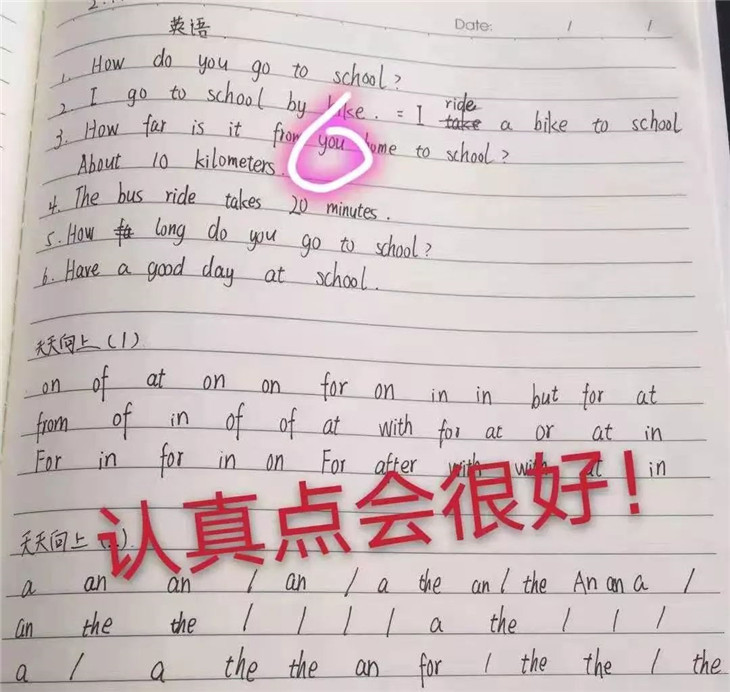 Date: / /
英语
1. How do you go to school?
2. I go to school by bike. = I take ride a bike to school
3. How far is it from you home to school?
About 10 kilometers.
6
4. The bus ride takes 20 minutes.
5. How fa long do you go to school?
6. Have a good day at school.
天天向上 (1)
on of at on on for on in in but for at
from of in of of at with for at or at in
For in for in on For after with with at in
认真点会很好!
天天向上 (2)
a an an / an / a the an / the An an a /
an the the / / / / a the / / /
a / a the the an for / the the / the